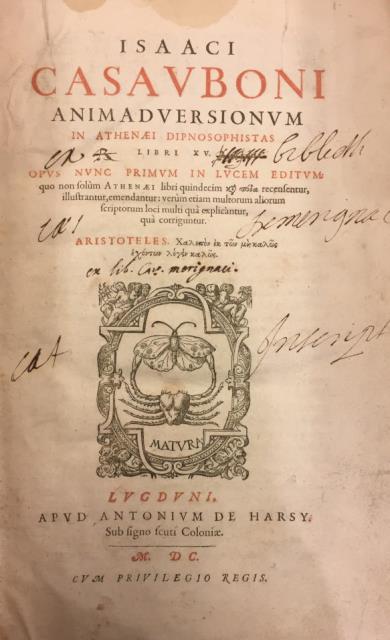 ISAACI
CASAVBONI
ANIMADVERSIONVM
IN ATHENÆI DIPNOSOPHISTAS
LIBRI XV.
ex biblioth
OPVS NVNC PRIMVM IN LVCEM EDITVM:
quo non solùm ATHENÆI libri quindecim κατὰ πόδα recensentur,
illustrantur, emendantur: verùm etiam multorum aliorum
scriptorum loci multi quà explicãntur,
quà corriguntur.
ARISTOTELES. Χαλεπὸν ἐκ τῶν μὴ καλῶς
ἐχόντων λέγειν καλῶς.
ex lib. Cæs. merignaci.
MATVRA
Inscript
cat
LVGDVNI,
APVD ANTONIVM DE HARSY.
Sub signo scuti Coloniæ.
M. DC.
CVM PRIVILEGIO REGIS.